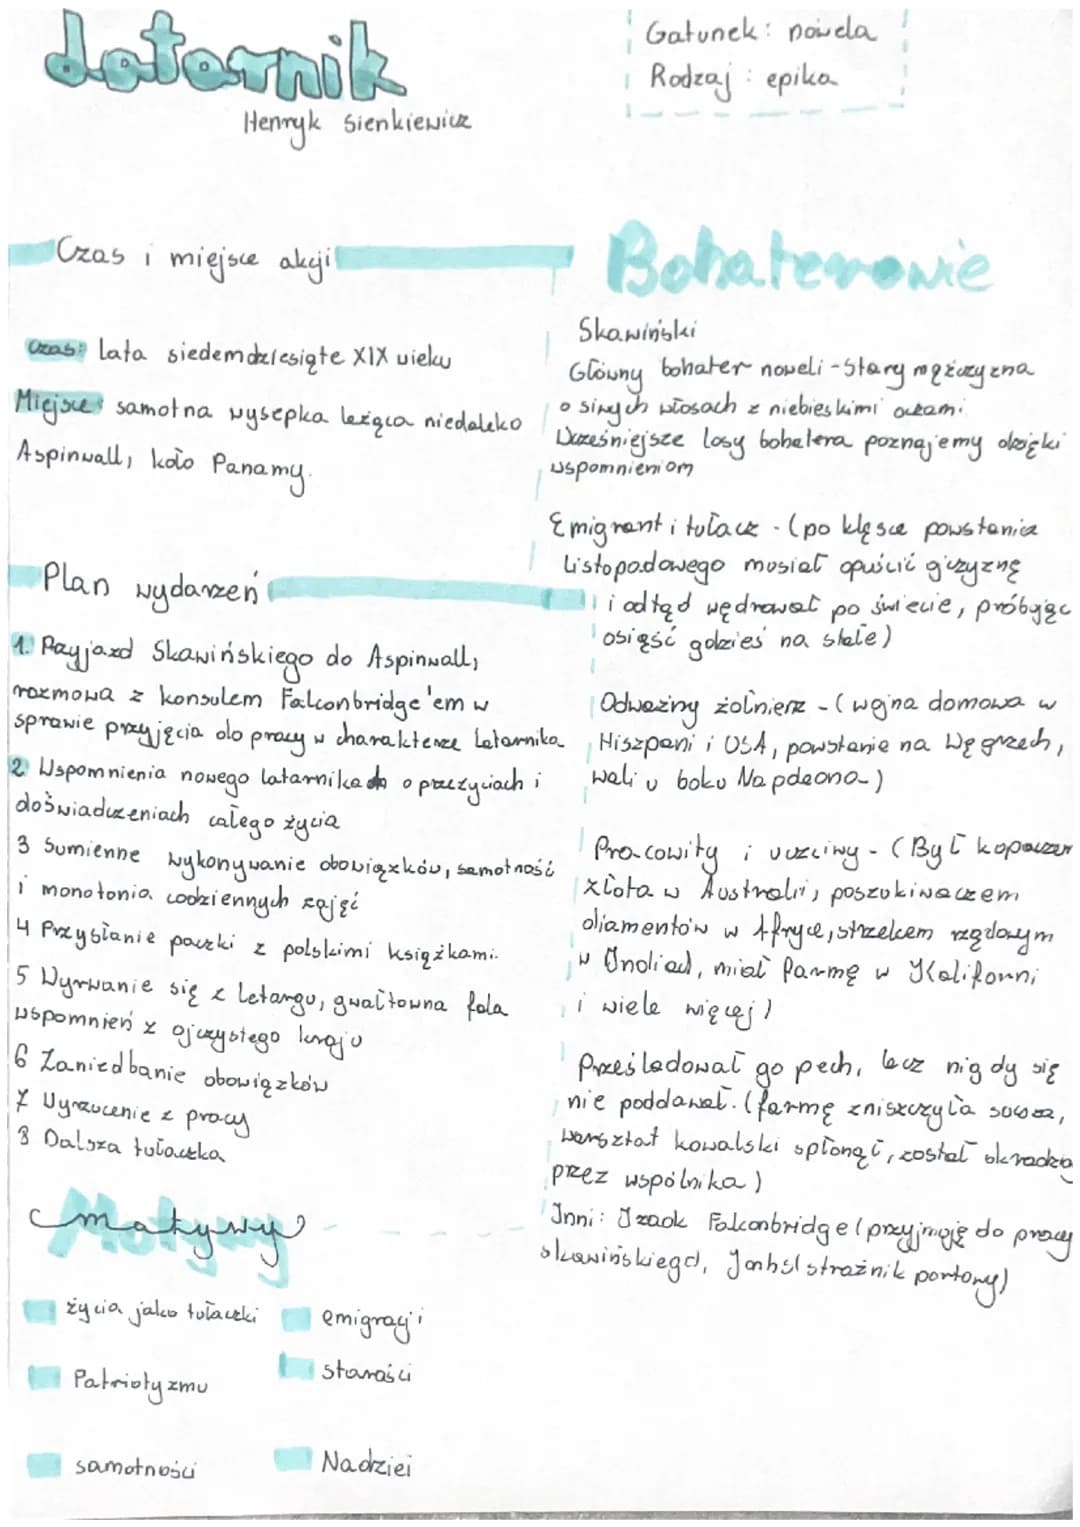 Latarnik
Henryk Sienkiewicz
Gatunek: nowela
Rodzaj: epika
Czas i miejsce akcji
Czas: Lata siedemdziesiąte XIX wieku
Miejsce: samotna wysepka leżąca niedaleko
Aspinwall, koło Panamy.
Plan wydarzeń
1. Przyjazd Skawińskiego do Aspinwall,
rozmowa z konsulem Falconbridge'em w
sprawie przyjęcia do pracy w charakterze latarnika
2 Wspomnienia nowego latarnika o przeżyciach i
doświadczeniach całego życia
3 Sumienne wykonywanie obowiązków, samotność
i monotonia codziennych zajęć
4 Przysłanie paczki z polskimi książkami.
5 Wyrwanie się z letargu, gwałtowna fala
wspomnień z ojczystego kraju
6 Zaniedbanie obowiązków
7 Wyrzucenie z pracy
8 Dalsza tułaczka
Motywy
życia jako tułaczki
emigracji
Patriotyzmu
starości
samotności
Nadziei
Bohaterowie
Skawiński
Główny bohater noweli - Stary mężczyzna
o siwych włosach z niebieskimi oczami.
Wcześniejsze losy bohatera poznajemy dzięki
wspomnieniom
Emigrant i tułacz - (po klęsce powstania
Listopadowego musiał opuścić ojczyznę
i odtąd wędrował po świecie, próbując
osiąść gdzieś na stałe)
Odważny żołnierz - (wojna domowa w
Hiszpani i USA, powstanie na Węgrzech,
walki u boku Napoleona)
Pracowity i uczciwy - (Był kopaczem
złota w Australii, poszukiwaczem
diamentów w Afryce, strzelcem rządowym
w Indiach, miał farmę w Kaliforni,
i wiele więcej)
Prześladował go pech, lecz nigdy się
nie poddawał. (farmę zniszczyła susza,
warsztat kowalski spłonął, został okradzio
przez wspólnika)
Inni: Izaak Falconbridge (przyjmuję do pracy
skawińskiego), Johns (strażnik portowy)